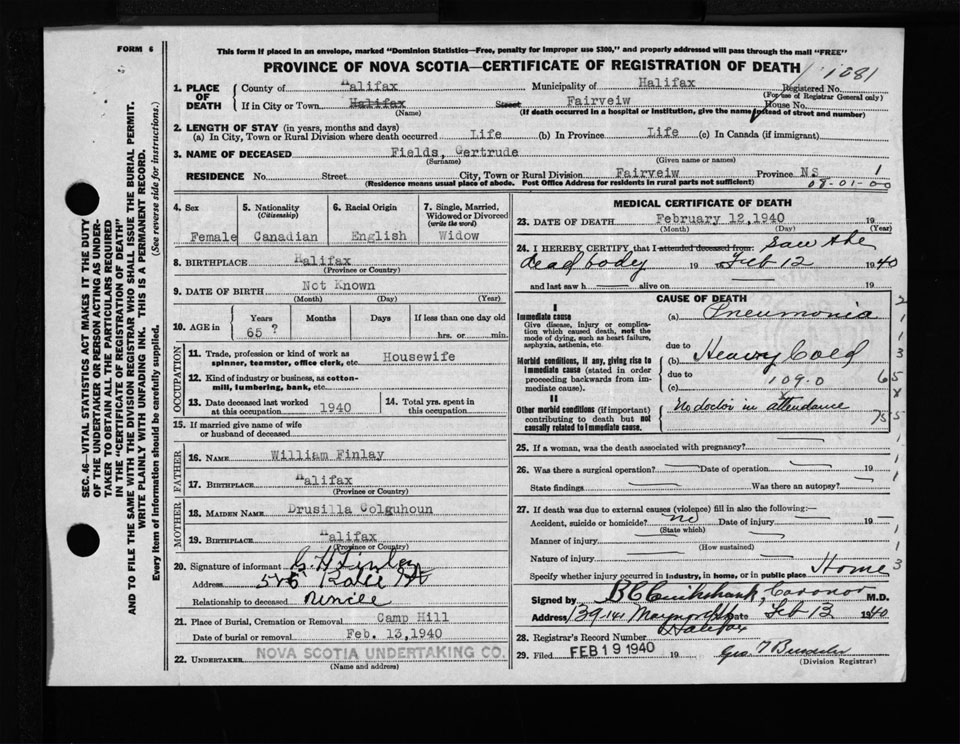 FORM 6
This form if placed in an envelope, marked "Dominion Statistics—Free, penalty for improper use $300," and properly addressed will pass through the mail "FREE"
PROVINCE OF NOVA SCOTIA—CERTIFICATE OF REGISTRATION OF DEATH
1081
1. PLACE OF DEATH
County of Halifax Municipality of Halifax Registered No.
(For use of Registrar General only)
If in City or Town Halifax Street Fairveiw House No.
(Name) (If death occurred in a hospital or institution, give the name instead of street and number)
2. LENGTH OF STAY (in years, months and days)
(a) In City, Town or Rural Division where death occurred Life (b) In Province Life (c) In Canada (if immigrant)
3. NAME OF DECEASED Fields, Gertrude
(Surname) (Given name or names)
RESIDENCE No. Street City, Town or Rural Division Fairveiw Province NS 1
(Residence means usual place of abode. Post Office Address for residents in rural parts not sufficient) 08-01-00
4. Sex
Female
5. Nationality
(Citizenship)
Canadian
6. Racial Origin
English
7. Single, Married, Widowed or Divorced
(write the word)
Widow
8. BIRTHPLACE Halifax
(Province or Country)
9. DATE OF BIRTH Not Known
(Month) (Day) (Year)
10. AGE in Years Months Days If less than one day old
65 ? hrs. or min.
OCCUPATION
11. Trade, profession or kind of work as spinner, teamster, office clerk, etc. Housewife
12. Kind of industry or business, as cotton-mill, lumbering, bank, etc.
13. Date deceased last worked at this occupation 1940
14. Total yrs. spent in this occupation
15. If married give name of wife or husband of deceased
FATHER
16. NAME William Finlay
17. BIRTHPLACE Halifax
(Province or Country)
MOTHER
18. MAIDEN NAME Drusilla Colguhoun
19. BIRTHPLACE Halifax
(Province or Country)
20. Signature of informant G. H Finlay
Address
Relationship to deceased
21. Place of Burial, Cremation or Removal Camp Hill
Date of burial or removal Feb. 13,1940
22. UNDERTAKER NOVA SCOTIA UNDERTAKING CO.
(Name and address)
MEDICAL CERTIFICATE OF DEATH
23. DATE OF DEATH February 12,1940 19
(Month) (Day) (Year)
24. I HEREBY CERTIFY that I attended deceased from: Saw the
dead body 19 Feb 12 1940
and last saw h alive on 19
CAUSE OF DEATH
I
Immediate cause (a) Pneumonia
Give disease, injury or complication which caused death, not the mode of dying, such as heart failure, asphyxia, asthenia, etc.
due to
Morbid conditions, if any, giving rise to immediate cause (stated in order proceeding backwards from immediate cause).
(b) Heavy Cold
due to
(c) 109.0
II
Other morbid conditions (if important) contributing to death but not causally related to immediate cause.
No doctor in attendance
25. If a woman, was the death associated with pregnancy?
26. Was there a surgical operation? Date of operation 19
State findings Was there an autopsy?
27. If death was due to external causes (violence) fill in also the following:—
Accident, suicide or homicide? no Date of injury 19
(State which)
Manner of injury
(How sustained)
Nature of injury
Specify whether injury occurred in industry, in home, or in public place Home
Signed by Coronor M.D.
Address Halifax Feb 13 1940
28. Registrar's Record Number
29. Filed FEB 19 1940 19
(Division Registrar)
SEC. 46—VITAL STATISTICS ACT MAKES IT THE DUTY
OF THE UNDERTAKER OR PERSON ACTING AS UNDER-
TAKER TO OBTAIN ALL THE PARTICULARS REQUIRED
IN THE "CERTIFICATE OF REGISTRATION OF DEATH"
AND TO FILE THE SAME WITH THE DIVISION REGISTRAR WHO SHALL ISSUE THE BURIAL PERMIT.
WRITE PLAINLY WITH UNFADING INK. THIS IS A PERMANENT RECORD.
Every item of information should be carefully supplied. (See reverse side for instructions.)